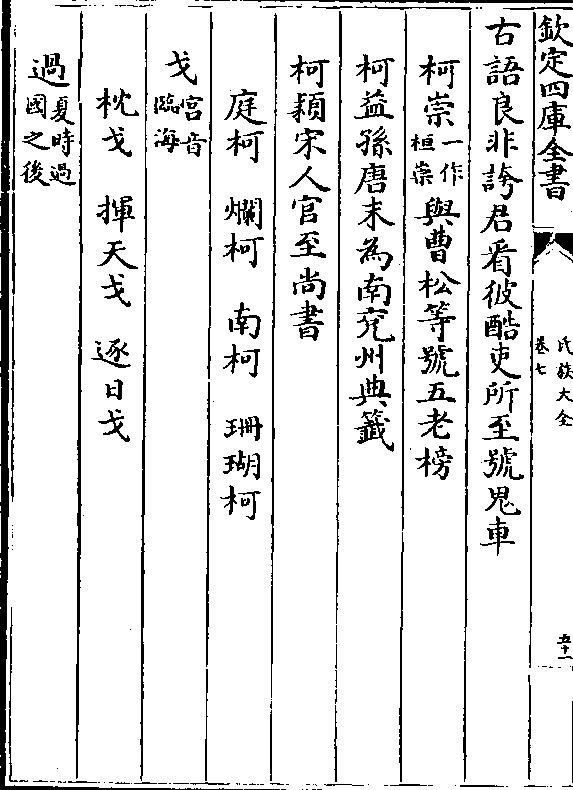 欽定四庫全書
氏族大全
卷七
五十一
古語良非誇君看彼酷吏所至號鬼車
柯崇一作桓崇與曹松等號五老榜
柯益孫唐末為南兖州典籖
柯頴宋人官至尚書
庭柯　爛柯　南柯　珊瑚柯
戈宫音臨海
枕戈　揮天戈　逐日戈
過夏時過國之後